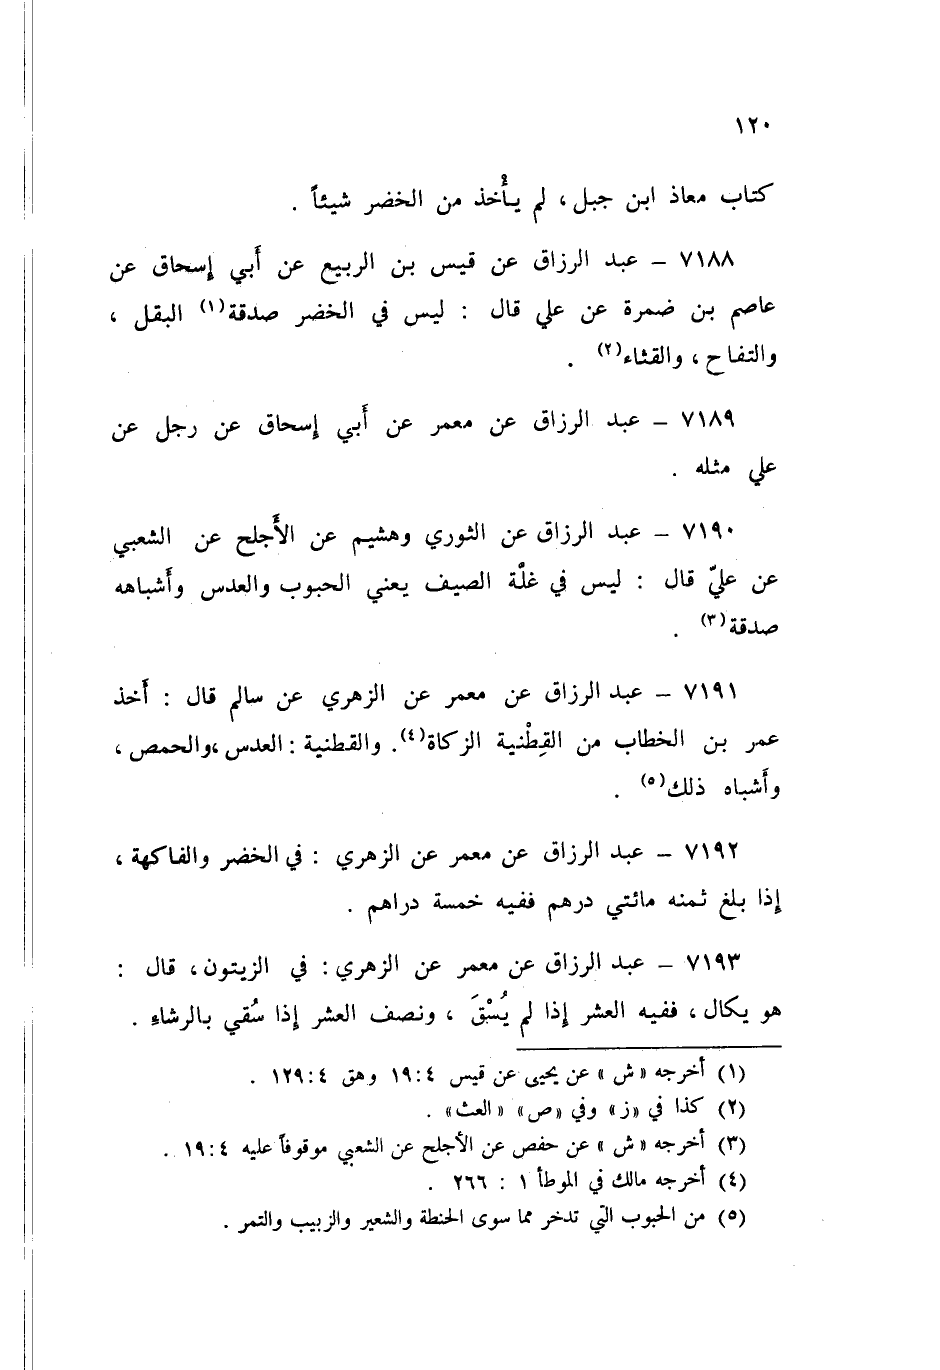 ١٢٠
كتاب معاذ ابن جبل ، لم يأْخذ من الخضر شيئاً .
٧١٨٨ – عبد الرزاق عن قيس بن الربيع عن أَبي إِسحاق عن
عاصم بن ضمرة عن علي قال : ليس في الخضر صدقة(١) البقل ،
والتفاح ، والقثاء(٢) .
٧١٨٩ – عبد الرزاق عن معمر عن أَبي إِسحاق عن رجل عن
علي مثله .
٧١٩٠ – عبد الرزاق عن الثوري وهشيم عن الأَجلح عن الشعبي
عن عليّ قال : ليس في غلَّة الصيف يعني الحبوب والعدس وأَشباهه
صدقة(٣) .
٧١٩١ – عبد الرزاق عن معمر عن الزهري عن سالم قال : أَخذ
عمر بن الخطاب من القِطْنية الزكاة(٤). والقطنية : العدس ،والحمص ،
وأَشباه ذلك(٥) .
٧١٩٢ – عبد الرزاق عن معمر عن الزهري : في الخضر والفاكهة ،
إِذا بلغ ثمنه مائتي درهم ففيه خمسة دراهم .
٧١٩٣ – عبد الرزاق عن معمر عن الزهري : في الزيتون ، قال :
هو يكال ، ففيه العشر إِذا لم يُسْقَ ، ونصف العشر إِذا سُقي بالرشاء .
(١) أخرجه «ش» عن يحيى عن قيس ٤ : ١٩ وهق ٤ : ١٢٩ .
(٢) كذا في «ز» وفي «ص» «العث» .
(٣) أخرجه «ش» عن حفص عن الأجلح عن الشعبي موقوفاً عليه ٤ : ١٩ .
(٤) أخرجه مالك في الموطأ ١ : ٢٦٦ .
(٥) من الحبوب التي تدخر مما سوى الحنطة والشعير والزبيب والتمر .